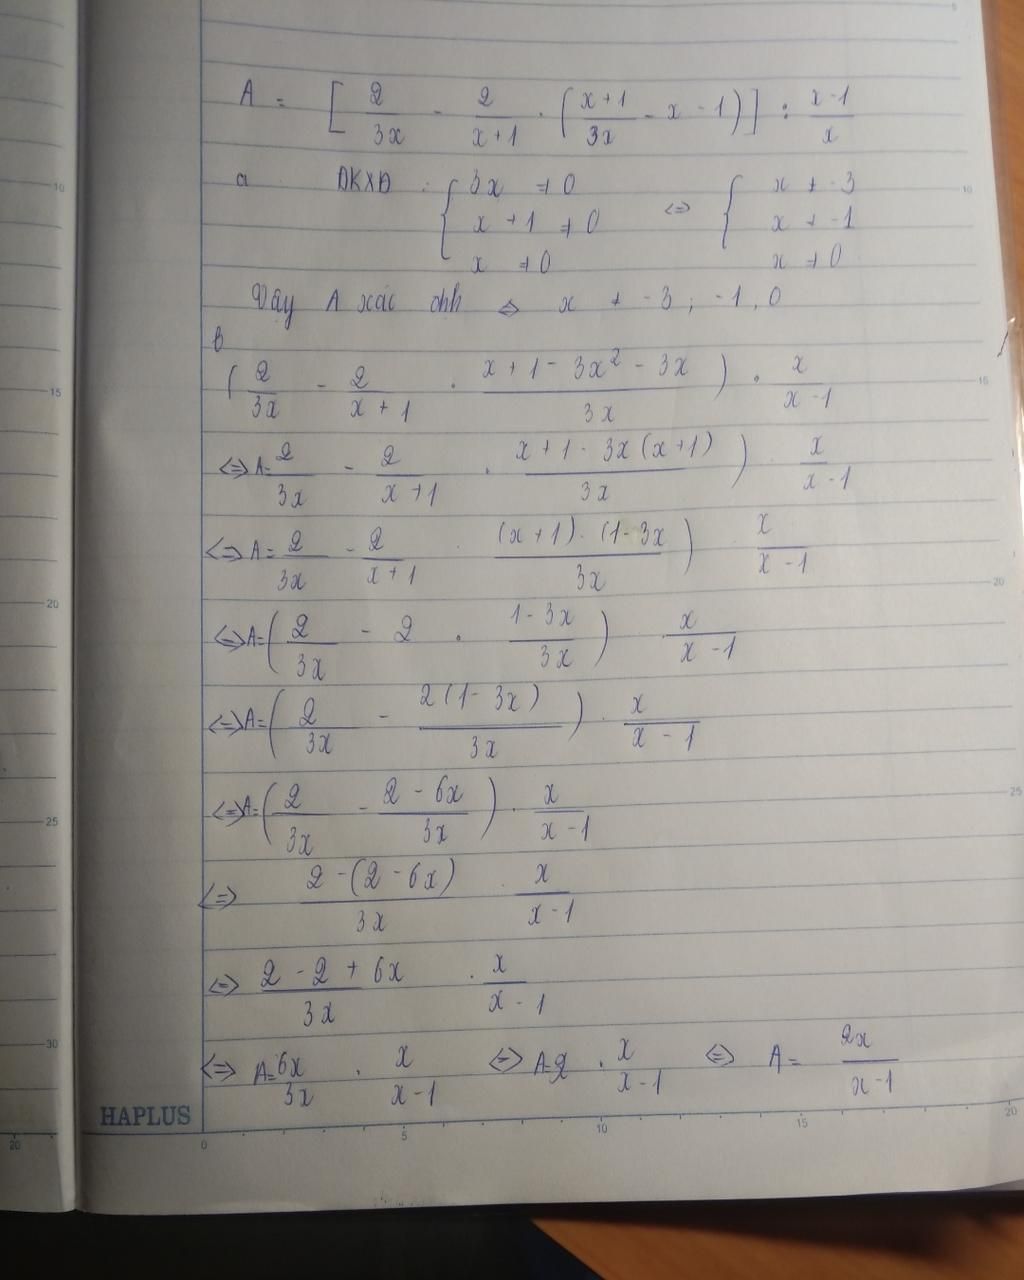 A = [ 2/3x - 2/x+1 . ( x+1/3x - x - 1 ) ] : x-1/x
a ĐKXĐ : { 3x ≠ 0 <=> { x ≠ -3
x + 1 ≠ 0 x ≠ -1
x ≠ 0 x ≠ 0
Vậy A xác định <=> x ≠ -3 ; -1, 0
b
( 2/3x - 2/x+1 . x + 1 - 3x² - 3x/3x ) . x/x-1
<=> A= 2/3x - 2/x+1 . x + 1 - 3x(x+1)/3x ) x/x-1
<=> A= 2/3x - 2/x+1 . (x+1) . (1-3x/3x ) x/x-1
<=> A= ( 2/3x - 2 . 1-3x/3x ) x/x-1
<=> A= ( 2/3x - 2(1-3x)/3x ) . x/x-1
<=> A= ( 2/3x - 2-6x/3x ) . x/x-1
<=> 2-(2-6x)/3x . x/x-1
<=> 2-2+6x/3x . x/x-1
<=> A= 6x/3x . x/x-1 <=> A= 2 . x/x-1 <=> A= 2x/x-1
HAPLUS